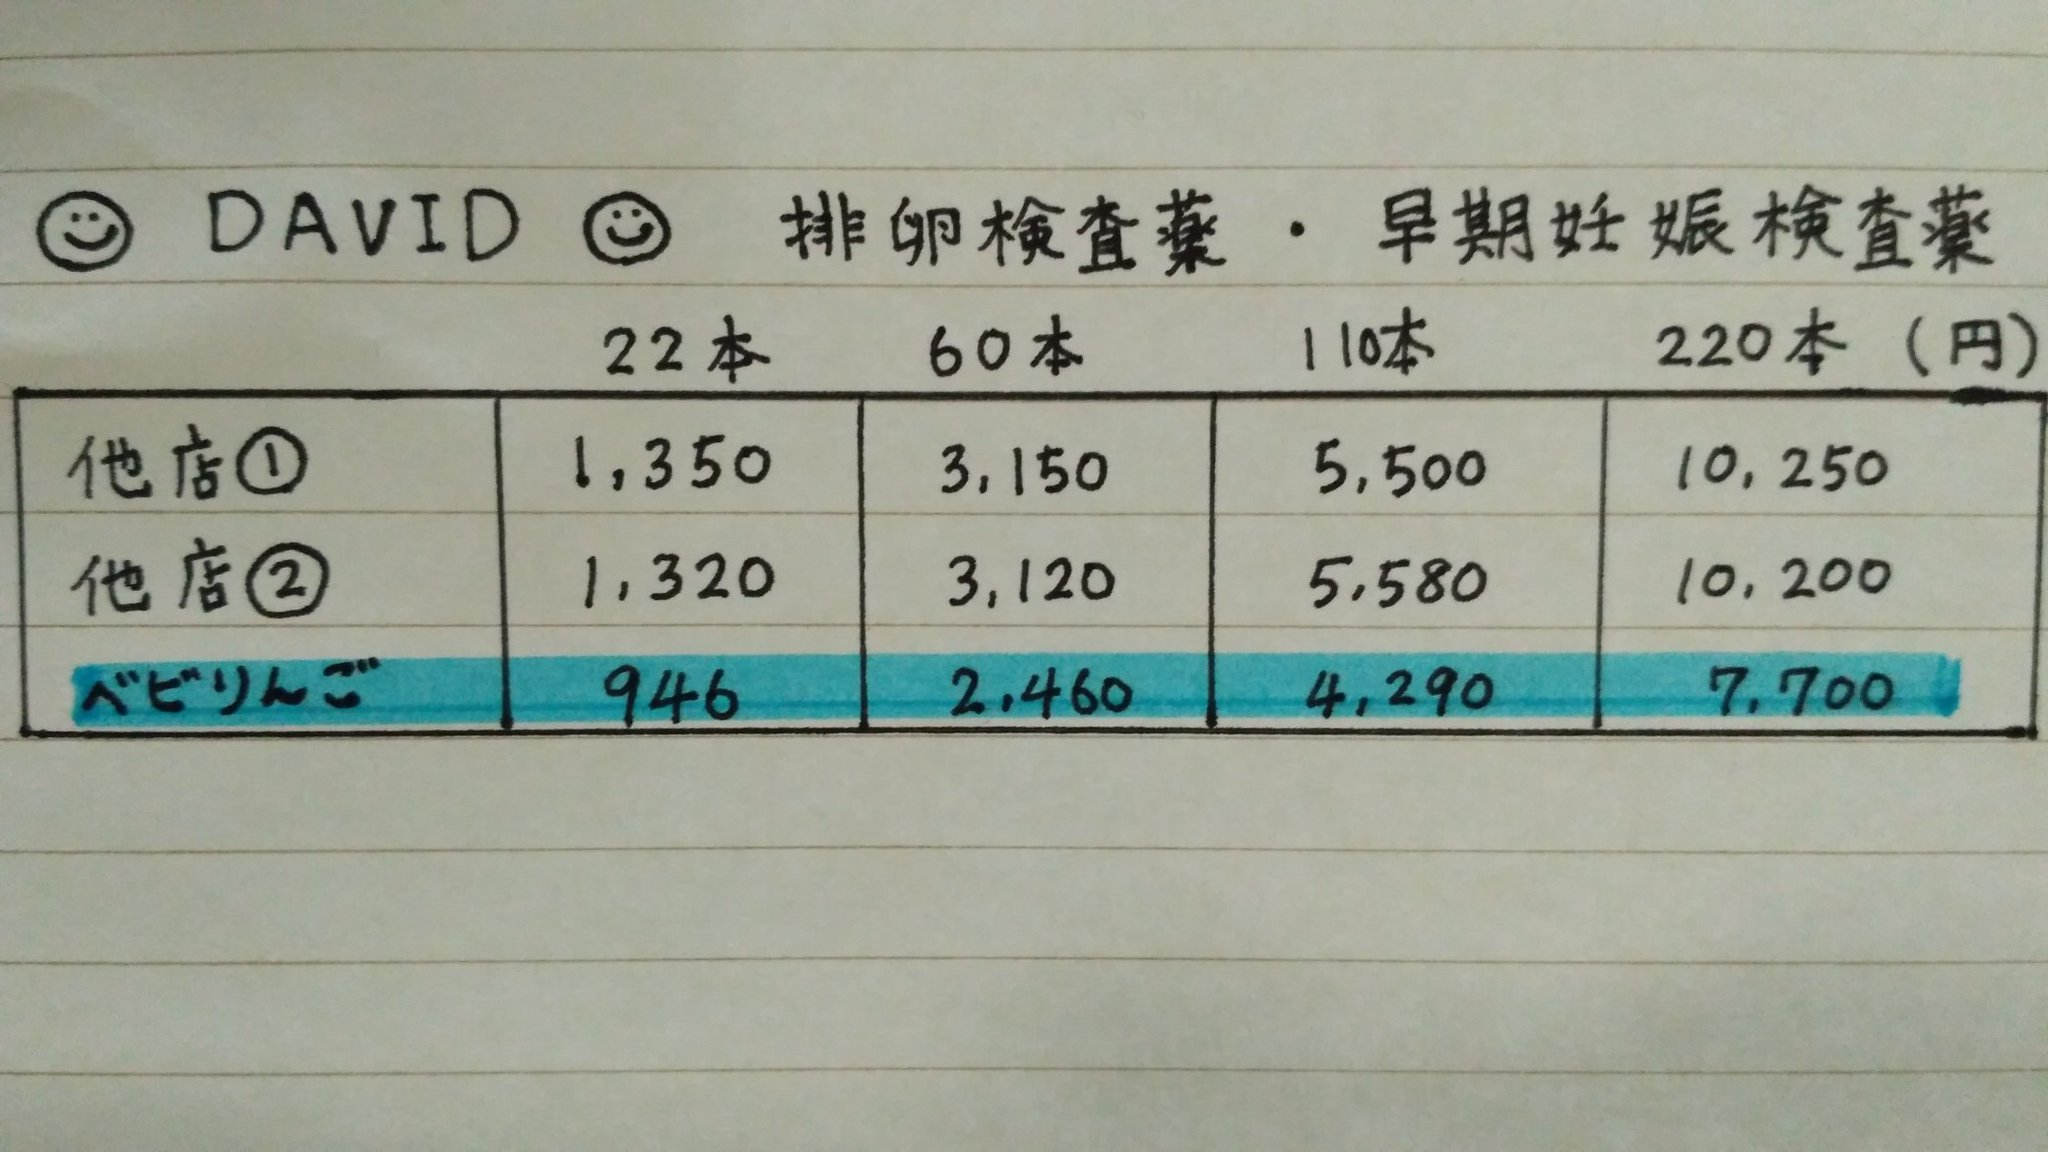 DAVID 排卵検査薬・早期妊娠検査薬
22本 60本 110本 220本 (円)
他店① 1,350 3,150 5,500 10,250
他店② 1,320 3,120 5,580 10,200
ベビりんご 946 2,460 4,290 7,700